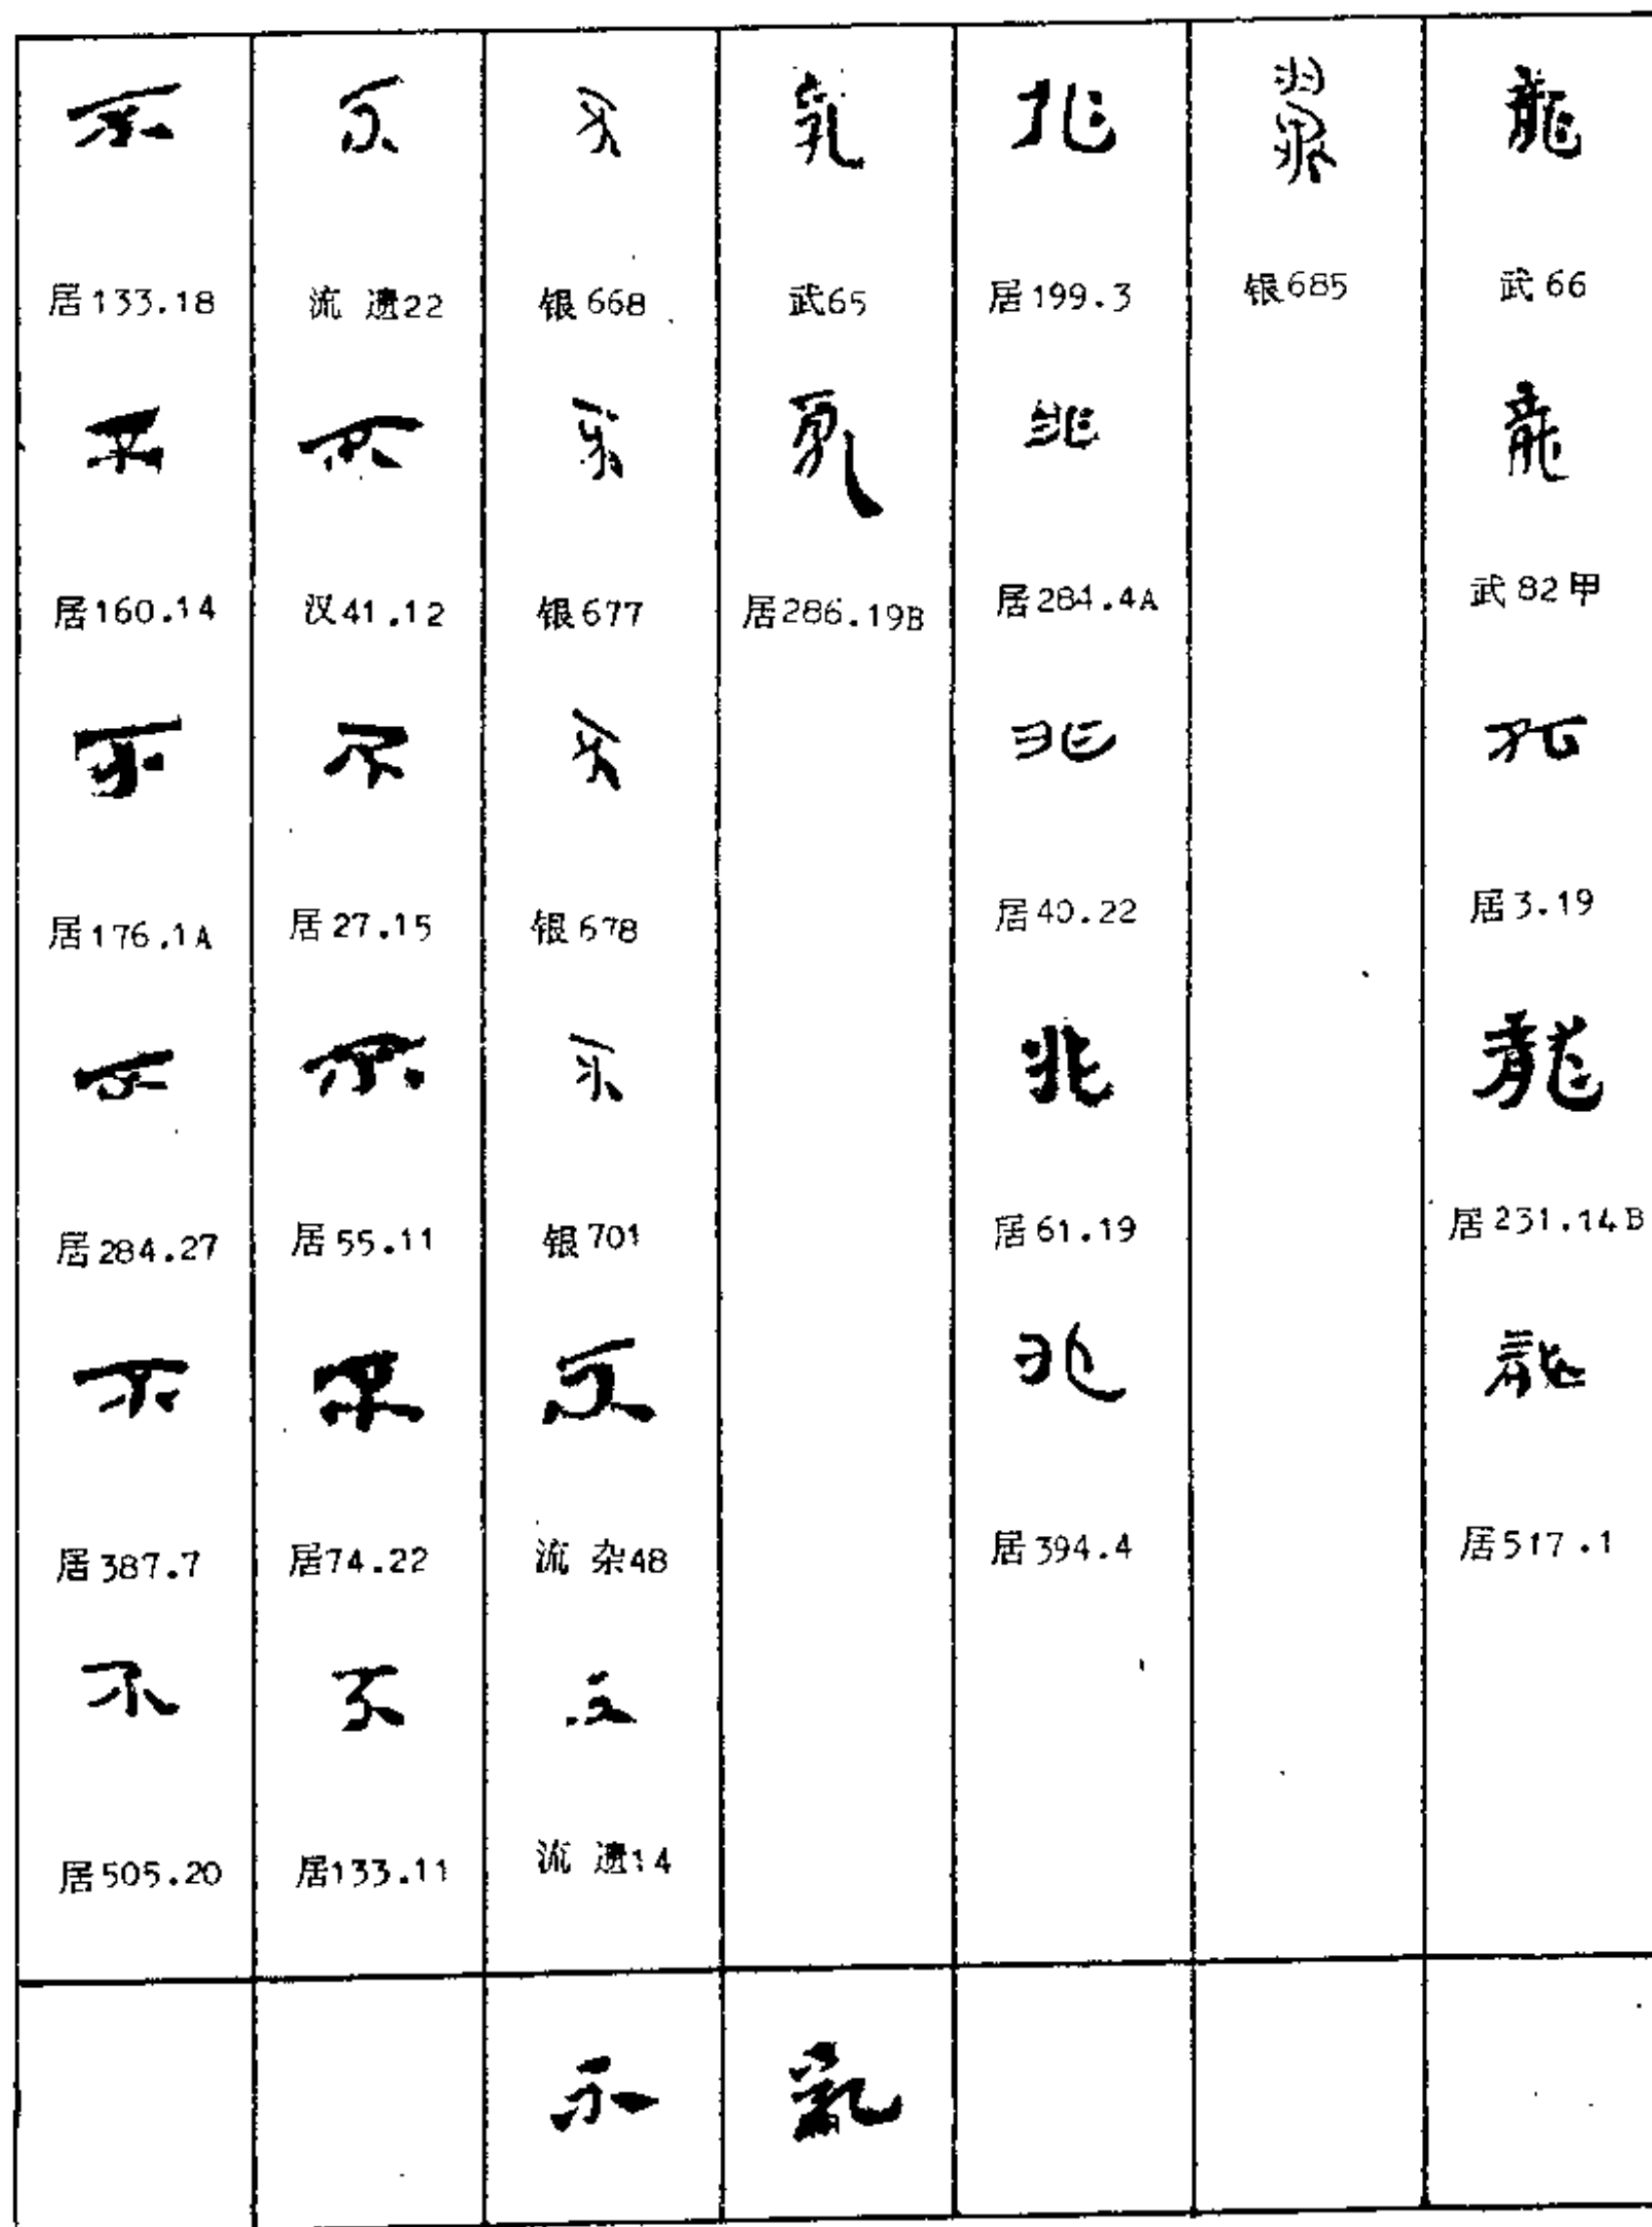 不 不 不 乳 非 龍
居133.18 流 遗22 银668 武65 居199.3 银685 武66
不 不 不 乳 非 龍
居160.14 汉41.12 银677 居286.19B 居284.4A 武82甲
不 不 不 非 龍
居176.1A 居27.15 银678 居40.22 居3.19
不 不 不 非 龍
居284.27 居55.11 银701 居61.19 居231.14B
不 不 不 非 龍
居387.7 居74.22 流 杂48 居394.4 居517.1
不 不 不
居505.20 居133.11 流 遗14
不 乳